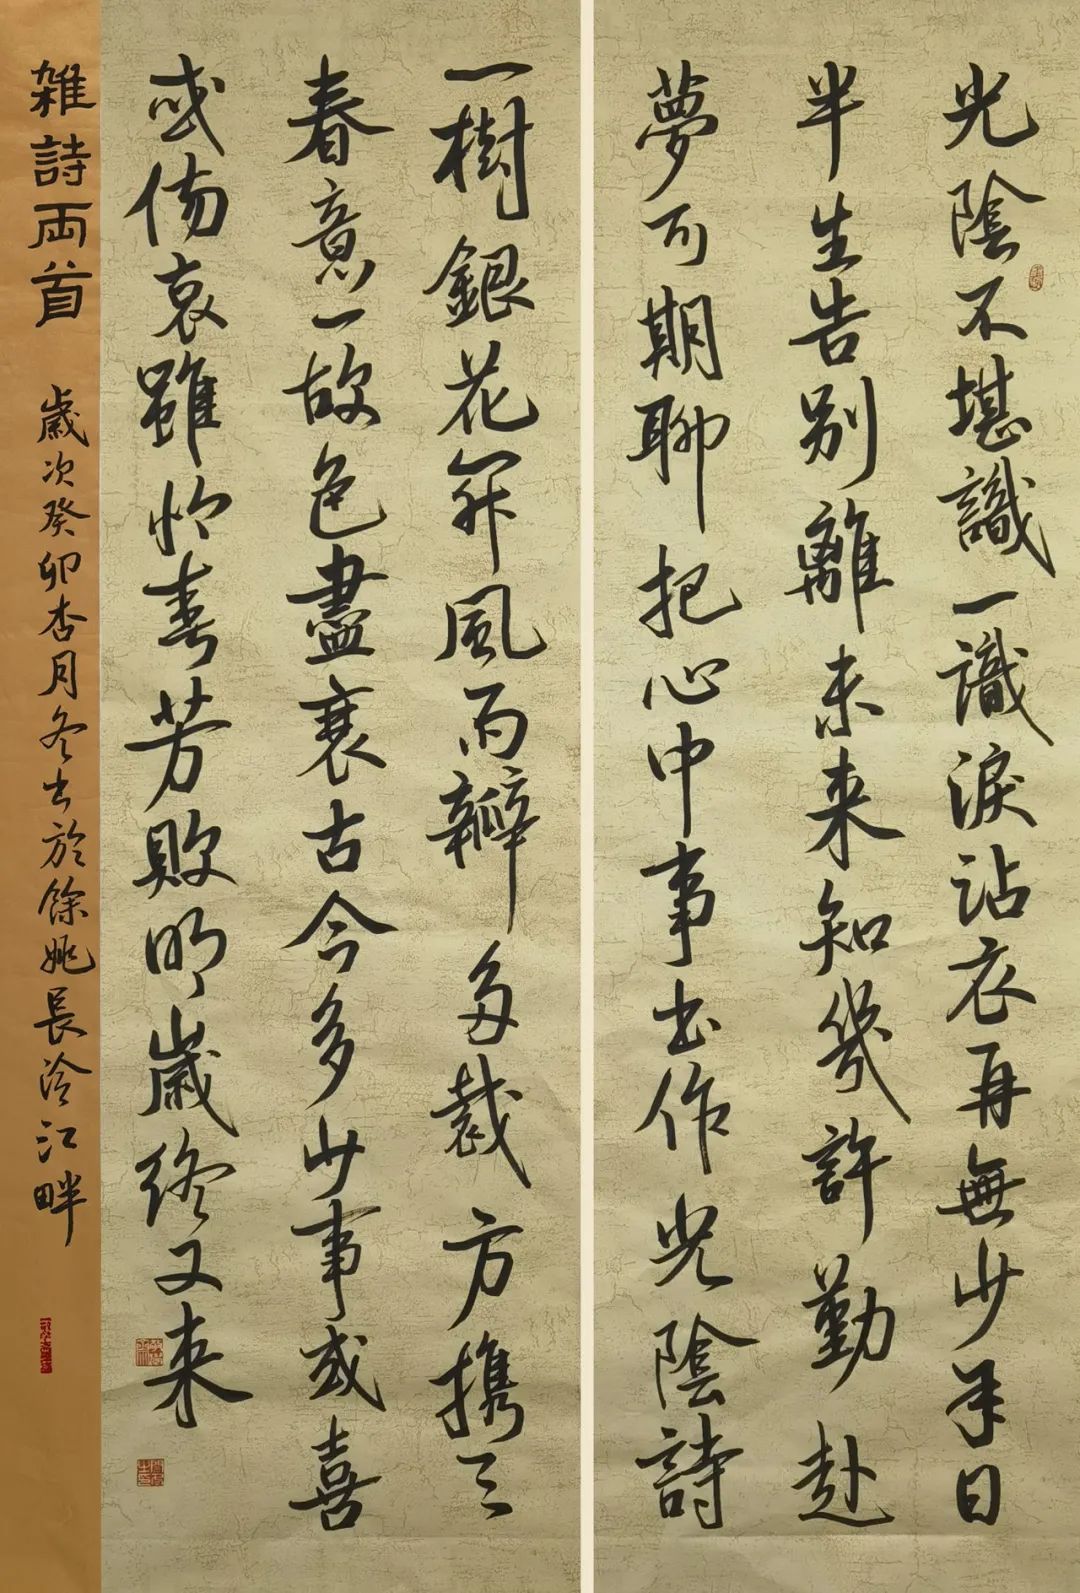 光陰不堪識一識淚沾衣再無少年日
半生告別離未来知幾許勤赴
夢可期聊把心中事書作光陰詩
一樹銀花開風雨瓣多裁方携三
春意一故色盡衰古今多少事或喜
或傷哀雖怜春芳敗明歲終又来
雜詩兩首
歲次癸卯杏月冬書於餘姚長泠江畔